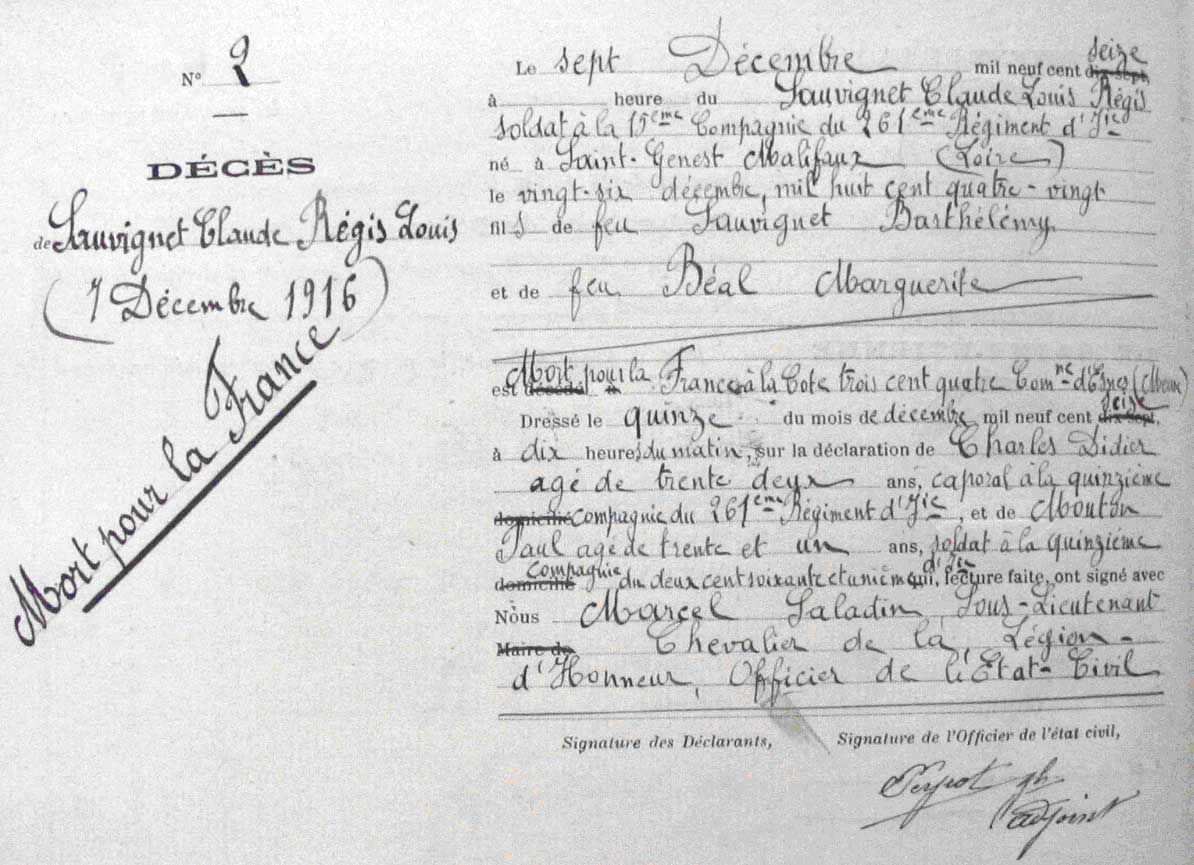 N° 2
DÉCÈS
de Sauvignet Claude Régis Louis
(7 Décembre 1916)
Mort pour la France
Le sept Décembre mil neuf cent dix-sept, seize
à heure du Sauvignet Claude Louis Régis
soldat à la 15eme Compagnie du 261eme Régiment d'Ie
né à Saint-Genest Malifaux (Loire)
le vingt-six décembre, mil huit cent quatre-vingt
fils de feu Sauvignet Barthélémy
et de feu Béal Marguerite
est décédé à Mort pour la France à la Cote trois cent quatre Comne d'Esnes (Meuse)
Dressé le quinze du mois de décembre mil neuf cent dix-sept, seize
à dix heures du matin, sur la déclaration de Charles Didier
agé de trente deux ans, caporal à la quinzième
domicilié compagnie du 261eme Régiment d'Ie, et de Mouton
Paul agé de trente et un ans, soldat à la quinzième
domicilié Compagnie du deux cent soixante et unième d'Ie qui, lecture faite, ont signé avec
Nous Marcel Saladin, Sous-Lieutenant
Maire de Chevalier de la Légion-
d'Honneur, Officier de l'Etat-Civil
Signature des Déclarants, Signature de l'Officier de l'état civil,
adjoint